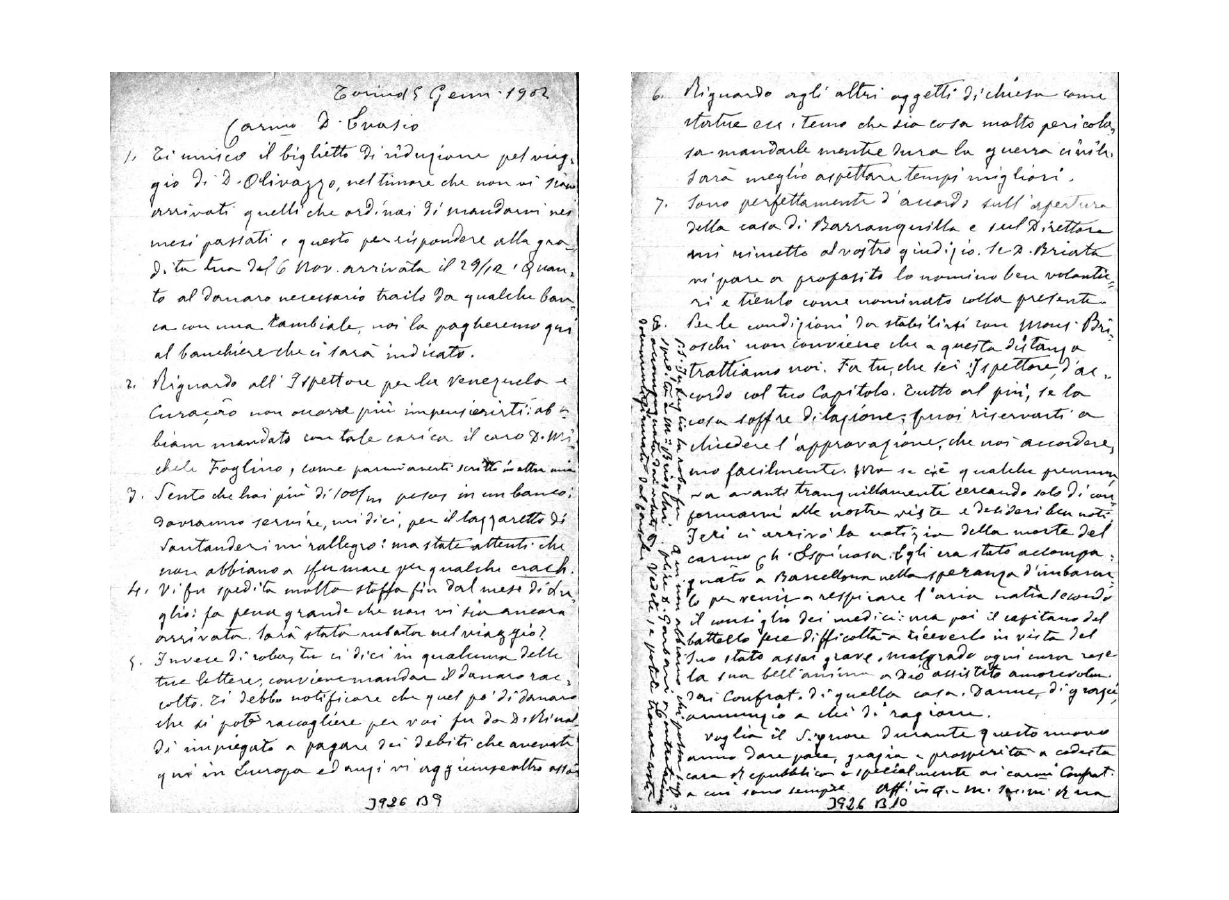 Torino 5 Genn. 1902
Carmo D. Evasio
1. Ti unisco il biglietto di riduzione pel viag-
gio di D. Olivazzo, nel timore che non vi siano
arrivati quelli che ordinai di mandarvi nei
mesi passati e questo per rispondere alla gra-
dita tua del 6 Nov. arrivata il 29/12. Quan-
to al danaro necessario trailo da qualche ban-
ca con una Cambiale, noi la pagheremo qui
al banchiere che ci sarà indicato.
2. Riguardo all'Ispettore per la Venezuela e
Curaçao non occorre più impensierirti: ab-
biam mandato con tale carica il caro D. Mi-
chele Foglino, come parmi averti scritto in altra mia
3. Sento che hai più di 100/m pesos in un banco;
dovranno servire, mi dici, per il lazzaretto di
Santander; mi rallegro: ma state attenti che
non abbiano a sfumare per qualche crach.
4. Vi fu spedita molta stoffa fin dal mese di Lu-
glio: fa pena grande che non vi sia ancora
arrivata. Sarà stata rubata nel viaggio?
5. Invece di roba, tu ci dici in qualcuna delle
tue lettere, conviene mandar il danaro rac-
colto. Ti debbo notificare che quel po' di danaro
che si potè raccogliere per voi fu da D. Rinal-
di impiegato a pagare dei debiti che avevate
qui in Europa ed anzi vi aggiunse altro assai
J926 B9
6. Riguardo agli altri oggetti di chiesa come
statue ecc. temo che sia cosa molto pericolo-
sa mandarle mentre dura la guerra civile.
Sarà meglio aspettare tempi migliori.
7. Sono perfettamente d'accordo sull'apertura
della casa di Barranquilla e sul Direttore
mi rimetto al vostro giudizio. Se D. Briata
vi pare a proposito lo nomino ben volentie-
ri e tienlo come nominato colla presente.
Per le condizioni da stabilirsi con Mons. Bri-
oschi non conviene che a questa distanza
trattiamo noi. Fa tu, che sei Ispettore, d'ac-
cordo col tuo Capitolo. Tutto al più, se la
cosa soffre dilazione, puoi riservarti a
chiedere l'approvazione, che noi accordere-
mo facilmente. Ma se c'è qualche premura,
va avanti tranquillamente cercando solo di con-
formarvi alle nostre viste e desideri ben noti.
Ieri ci arrivò la notizia della morte del
carmo Ch. Espinosa. Egli era stato accompa-
gnato a Barcellona nella speranza d'imbarcar-
lo per venir a respirare l'aria natia secondo
il consiglio dei medici: ma poi il capitano del
battello fece difficoltà a riceverlo in vista del
suo stato assai grave, malgrado ogni cura rese
la sua bell'anima a Dio assistito amorevolm.
dai Confrat. di quella casa. Danne, di grazia,
annunzio a chi di ragione.
Voglia il Signore durante questo nuovo
anno dare pace, grazia e prosperità a codesta
cara Repubblica e specialmente ai carmi Confrat.
a cui sono sempre Aff. in G. e M.
J926 B10